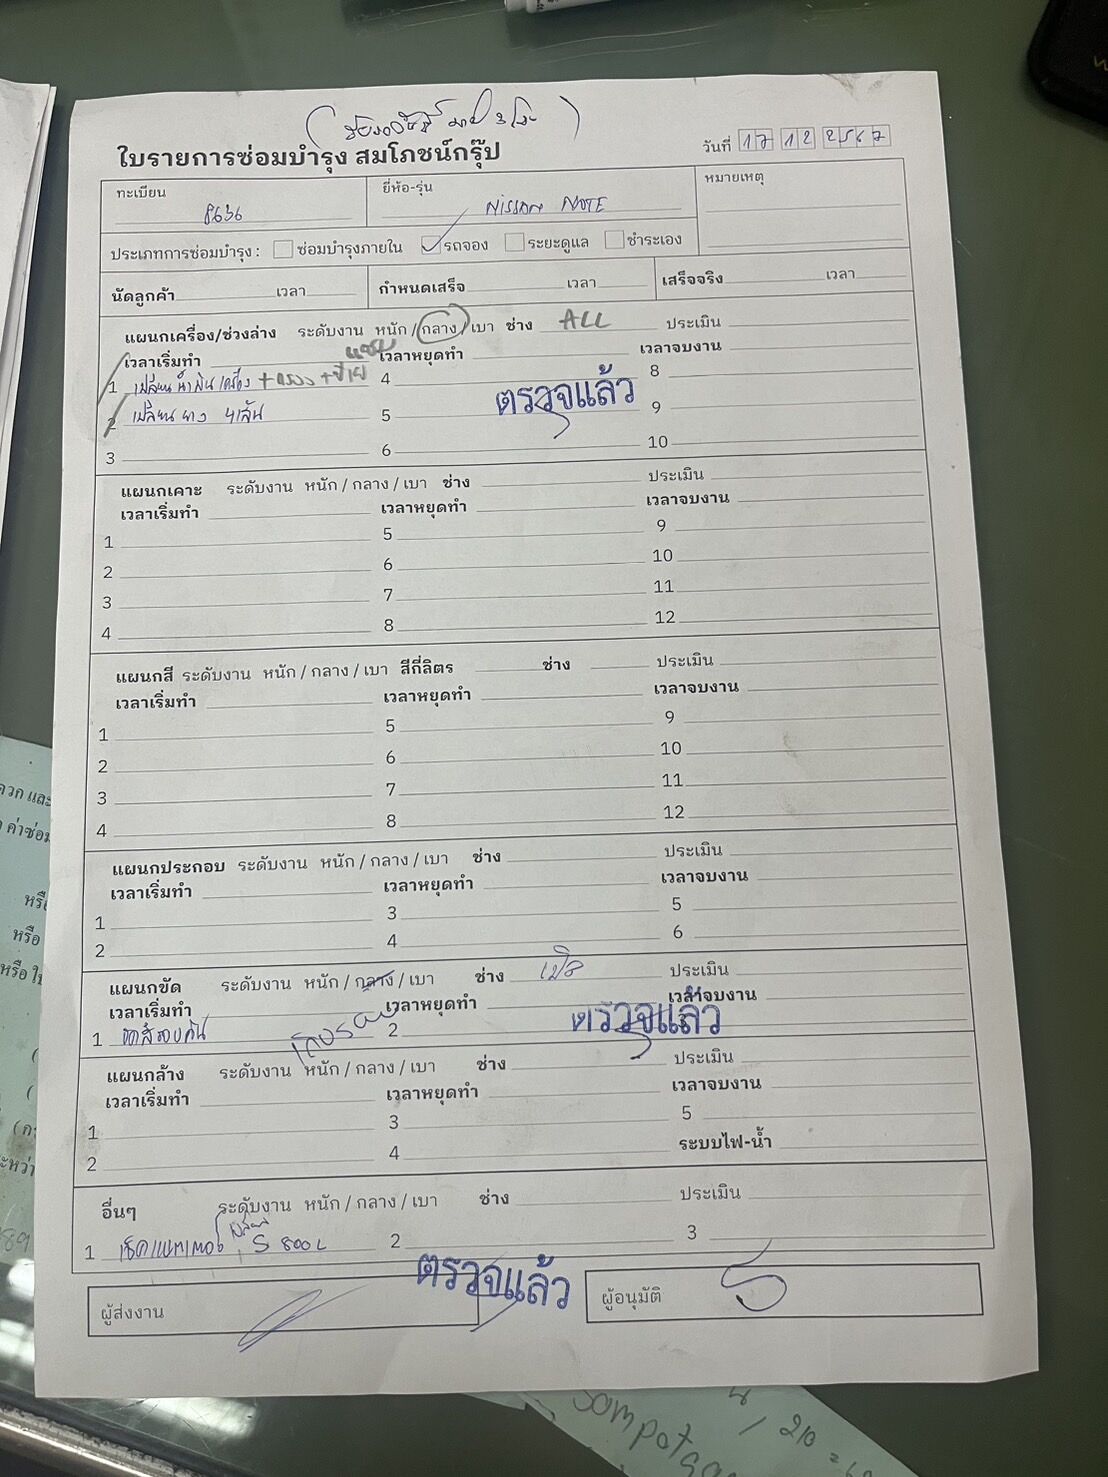 ใบรายการซ่อมบำรุง สมโภชน์กรุ๊ป
วันที่ 17 12 2567
ทะเบียน 8636
ยี่ห้อ-รุ่น NISSAN NOTE
หมายเหตุ
ประเภทการซ่อมบำรุง : ซ่อมบำรุงภายใน รถจอง ระยะดูแล ชำระเอง
นัดลูกค้า เวลา กำหนดเสร็จ เวลา เสร็จจริง เวลา
แผนกเครื่อง/ช่วงล่าง ระดับงาน หนัก / กลาง / เบา ช่าง ALL ประเมิน
เวลาเริ่มทำ เวลาหยุดทำ เวลาจบงาน
1 เปลี่ยนน้ำมันเครื่อง + กรอง 4 8
ตรวจแล้ว
2 เปลี่ยน ยาง 4เส้น 5 9
3 6 10
แผนกเคาะ ระดับงาน หนัก / กลาง / เบา ช่าง ประเมิน
เวลาเริ่มทำ เวลาหยุดทำ เวลาจบงาน
1 5 9
2 6 10
3 7 11
4 8 12
แผนกสี ระดับงาน หนัก / กลาง / เบา สีกี่ลิตร ช่าง ประเมิน
เวลาเริ่มทำ เวลาหยุดทำ เวลาจบงาน
1 5 9
2 6 10
3 7 11
4 8 12
แผนกประกอบ ระดับงาน หนัก / กลาง / เบา ช่าง ประเมิน
เวลาเริ่มทำ เวลาหยุดทำ เวลาจบงาน
1 3 5
2 4 6
แผนกขัด ระดับงาน หนัก / กลาง / เบา ช่าง ประเมิน
เวลาเริ่มทำ เวลาหยุดทำ เวลาจบงาน
1 ขัดสีรอบคัน 2 3
ตรวจแล้ว
แผนกล้าง ระดับงาน หนัก / กลาง / เบา ช่าง ประเมิน
เวลาเริ่มทำ เวลาหยุดทำ เวลาจบงาน
1 3 5
2 4 ระบบไฟ-น้ำ
อื่นๆ ระดับงาน หนัก / กลาง / เบา ช่าง ประเมิน
1 เช็คแบตเตอรี่ 2 3
ตรวจแล้ว
ผู้ส่งงาน ผู้อนุมัติ